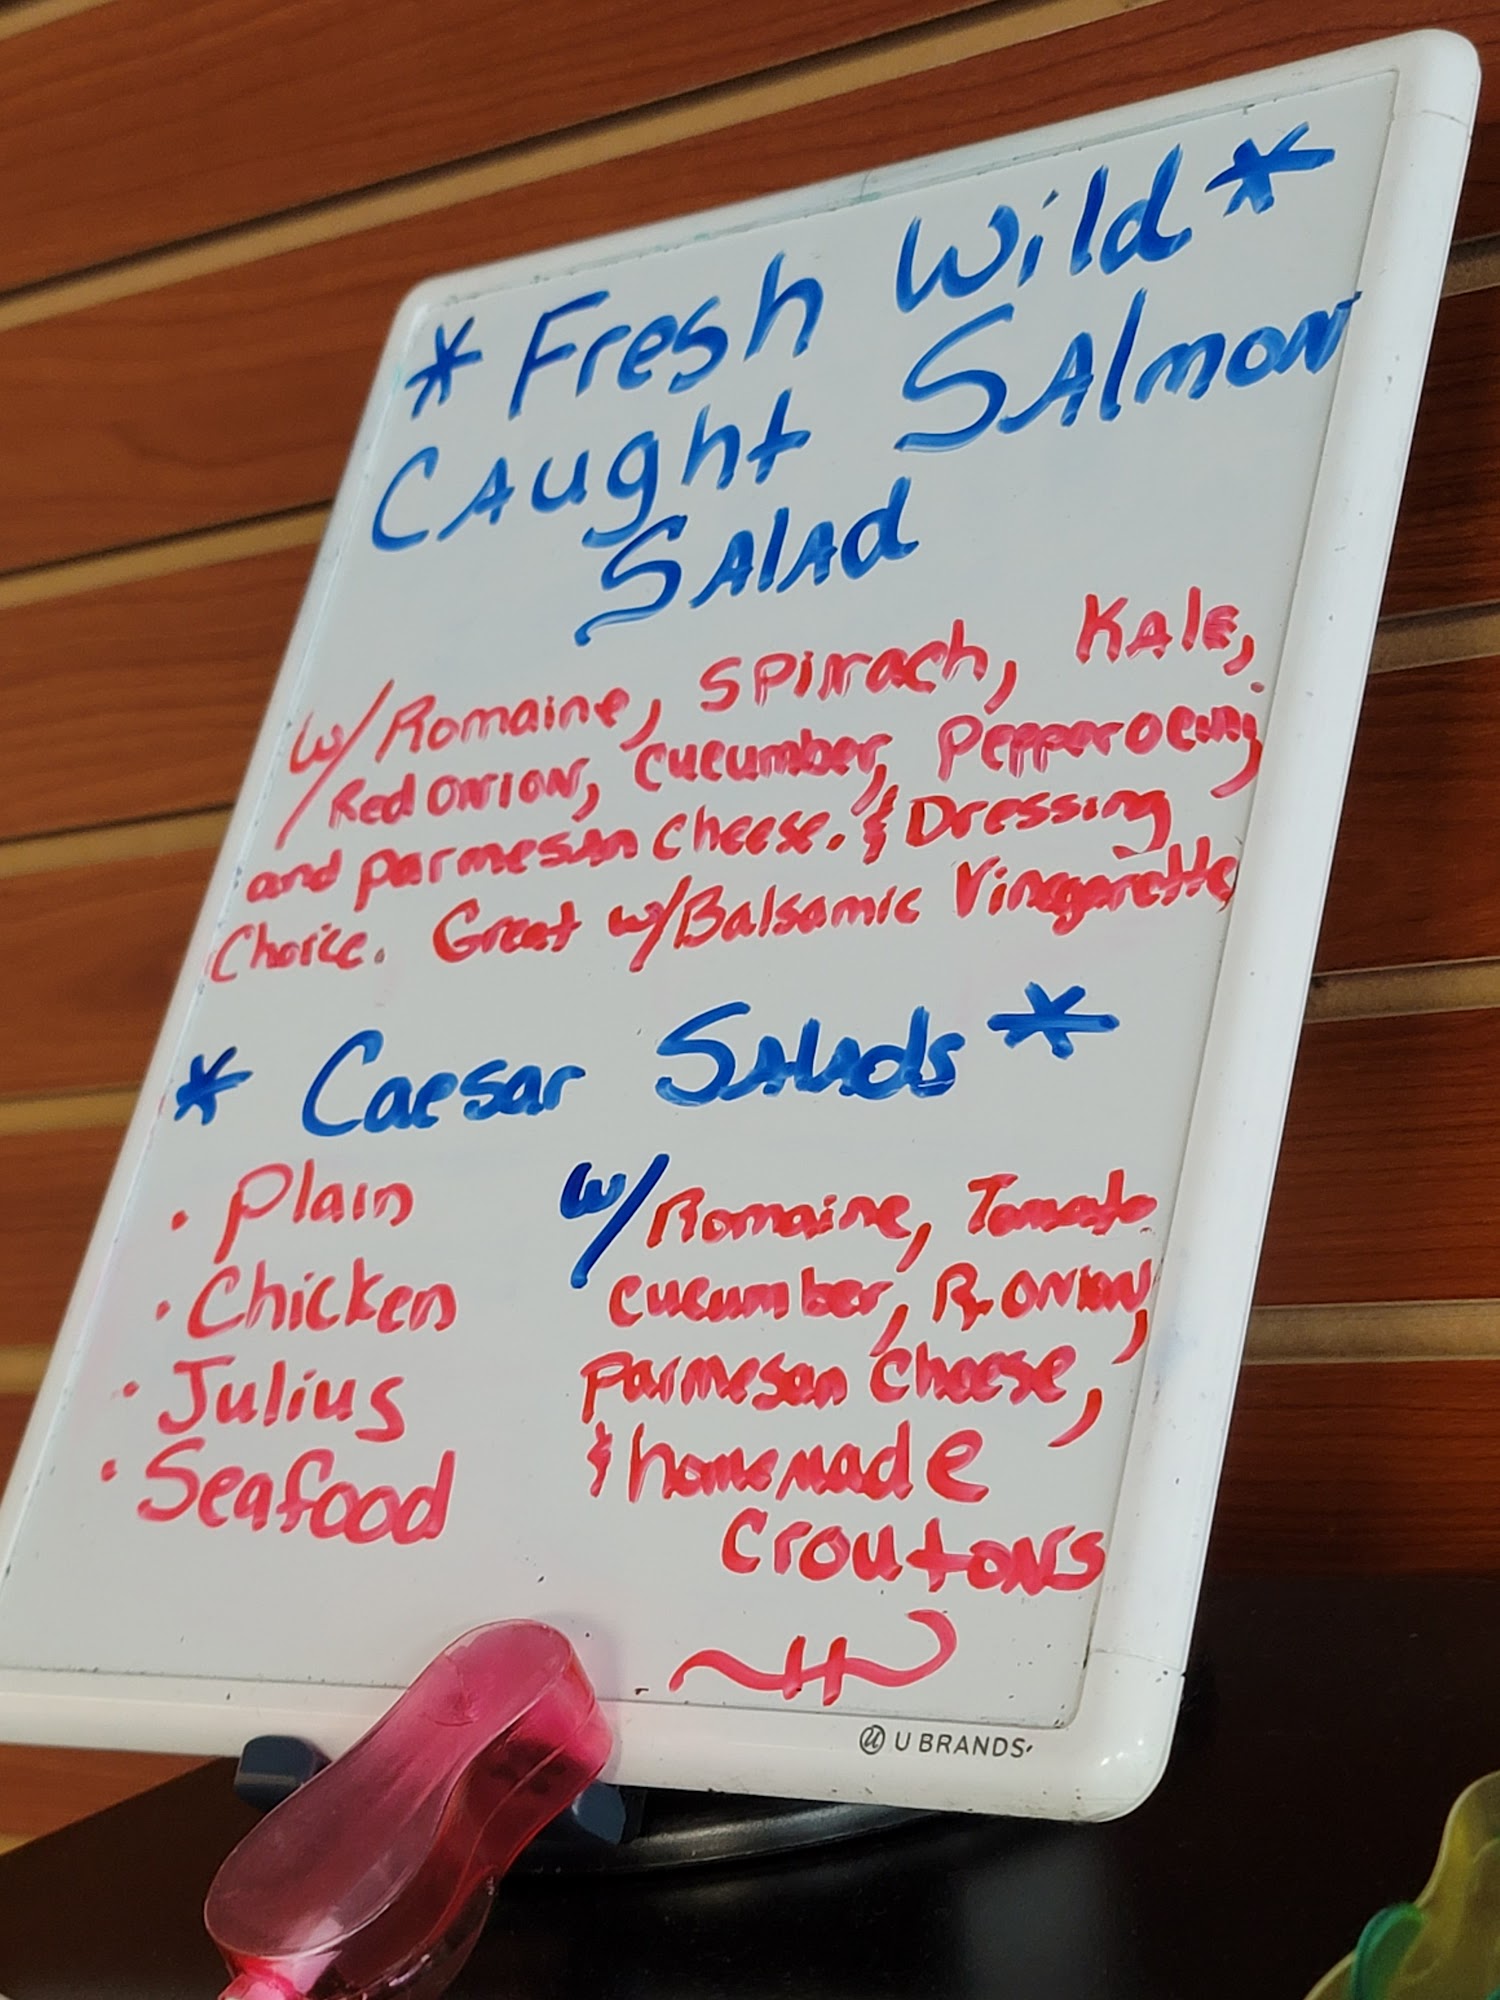 * Fresh Wild *
Caught Salmon
Salad
w/Romaine, Spinach, Kale,
Red onion, cucumber, Pepperocini,
and parmesan cheese. & Dressing
Choice. Great w/Balsamic Vinegarette
* Caesar Salads *
· Plain
· Chicken
· Julius
· Seafood
w/Romaine, Tomato
cucumber, R. onion,
parmesan cheese,
& homemade
croutons
U BRANDS